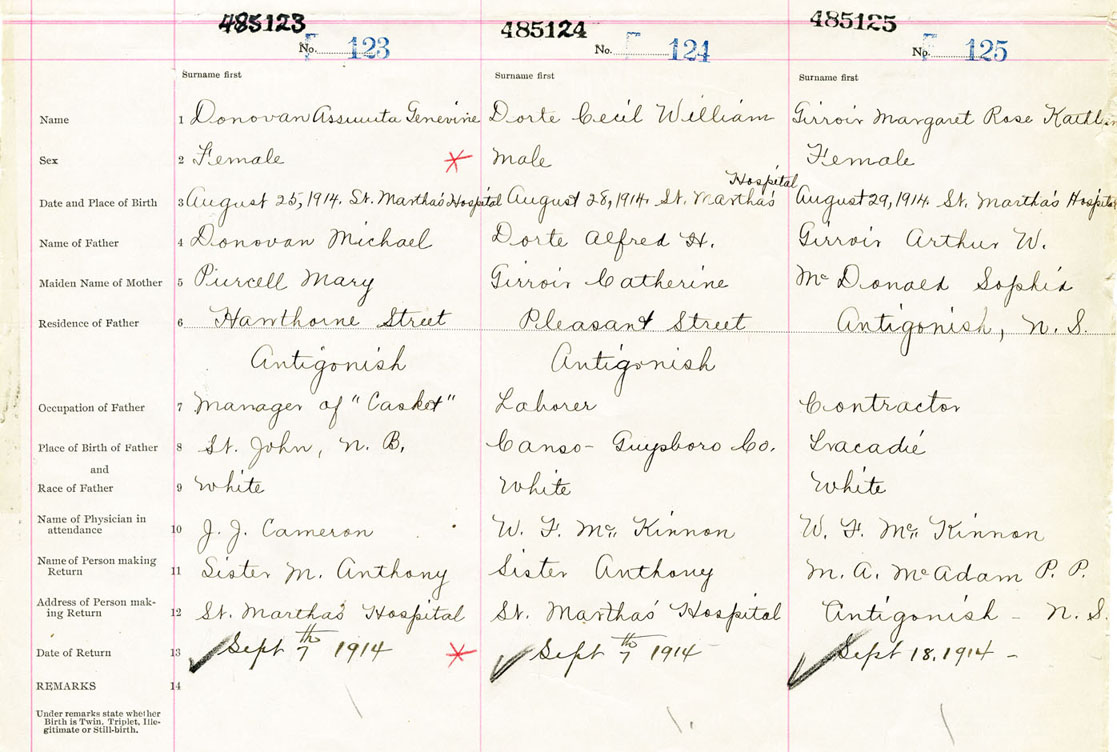 485123 485124 485125
No. F 123 No. F 124 No. F 125
Surname first Surname first Surname first
Name 1 Donovan Assunta Genevine Dorte Cecil William Girroir Margaret Rose
Sex 2 Female Male Female
Hospital
Date and Place of Birth 3 August 25, 1914. St. Martha's Hospital August 28, 1914. St. Martha's August 29, 1914. St. Martha's Hospital
Name of Father 4 Donovan Michael Dorte Alfred H. Girroir Arthur W.
Maiden Name of Mother 5 Purcell Mary Girroir Catherine McDonald Sophia
Residence of Father 6 Hawthorne Street Pleasant Street Antigonish, N. S.
Antigonish Antigonish
Occupation of Father 7 Manager of "Casket" Laborer Contractor
Place of Birth of Father 8 St. John, N. B. Canso - Guysboro Co. Tracadie
and
Race of Father 9 White White White
Name of Physician in
attendance 10 J. J. Cameron W. F. McKinnon W. F. McKinnon
Name of Person making
Return 11 Sister M. Anthony Sister Anthony M. A. McAdam P. P.
Address of Person mak-
ing Return 12 St. Martha's Hospital St. Martha's Hospital Antigonish - N. S.
Date of Return 13 Sept 7th 1914 Sept 7th 1914 - Sept 18, 1914 -
REMARKS 14
Under remarks state whether
Birth is Twin, Triplet, Ille-
gitimate or Still-birth.